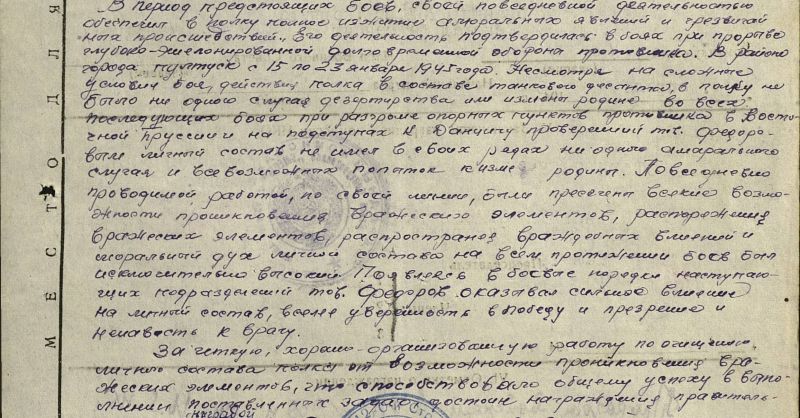 В период предстоящих боев, своей повседневной деятельностью
обеспечил в полку полное изжитие аморальных явлений и чрезвычай
ных происшествий. Его деятельность подтвердилась в боях при прорыве
глубоко-эшелонированной долговременной оборона противника. В районе
города Пултуск с 15 по 23 января 1945 года. Несмотря на сложные
условия боя, действия полка в составе танкового десанта, в полку не
было ни одного случая дезертирства или измены родине во всех
последующих боях при разгроме опорных пунктов противника в Восто-
чной Пруссии и на подступах к Данцигу проверенный тов. Федоро-
вым личный состав не имел в своих рядах ни одного аморального
случая и всевозможных попыток к изме родины. Повседневно
проводимой работой, по своей линии, были пресечены всякие возмо-
жности проникновения вражеского элементов,
вражеских элементов, распростране враждебных влияний и
моральный дух личного состава на всем протяжении боев был
исключительно высокий. Появляясь в боевых порядках наступаю-
щих подразделений тов. Федоров оказывал сильное влияние
на личный состав, вселяя уверенность в победу и презрение и
ненависть к врагу.
За четкую, хорошо организованную работу по очищению
личного состава полка от возможности проникновения вра-
жеских элементов, что способствовало общему успеху в выпо-
лнении поставленных задач достоин награждения правитель-
наградой
МЕСТО ДЛЯ